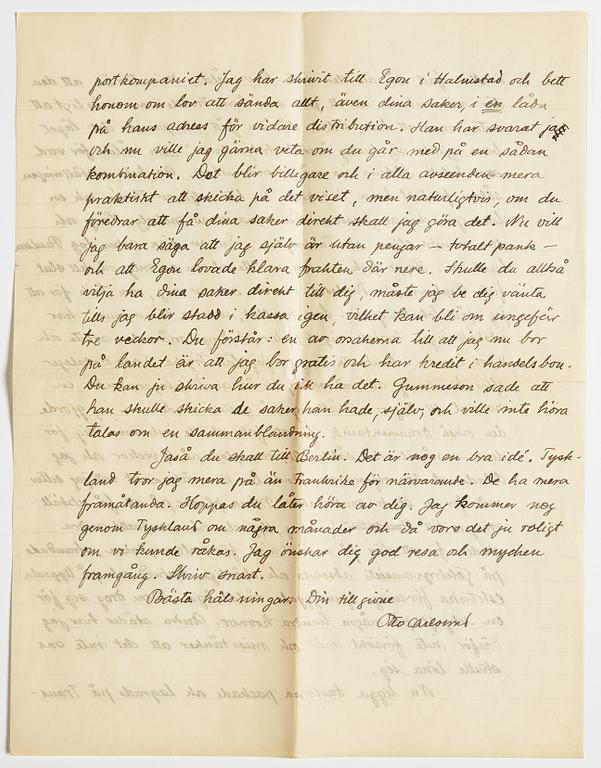 portkompaniet. Jag har skrivit till Egon i Halmstad och bett
honom om lov att sända allt, även dina saker, i en låda
på hans adress för vidare distribution. Han har svarat ja
och nu ville jag gärna veta om du går med på en sådan
kombination. Det blir billigare och i alla avseenden mera
praktiskt att skicka på det viset, men naturligtvis, om du
föredrar att få dina saker direkt skall jag göra det. Nu vill
jag bara säga att jag själv är utan pengar — totalt pank —
och att Egon lovade klara frakten där nere. Skulle du alltså
vilja ha dina saker direkt till dig, måste jag be dig vänta
tills jag blir stadd i kassa igen, vilket kan bli om ungefär
tre veckor. Du förstår: en av orsakerna till att jag nu bor
på landet är att jag bor gratis och har kredit i handelsbon.
Du kan ju skriva hur du vill ha det. Gummeson sade att
han skulle skicka de saker, han hade, själv, och ville inte höra
talas om en sammanblandning.
Jaså du skall till Berlin. Det är nog en bra idé. Tysk-
land tror jag mera på än Frankrike för närvarande. De ha mera
framåtanda. Hoppas du låter höra av dig. Jag kommer nog
genom Tyskland om några månader och då vore det ju roligt
om vi kunde råkas. Jag önskar dig god resa och mycken
framgång. Skriv snart.
Bästa hälsningar. Din tillgivne
Otto Carlsund